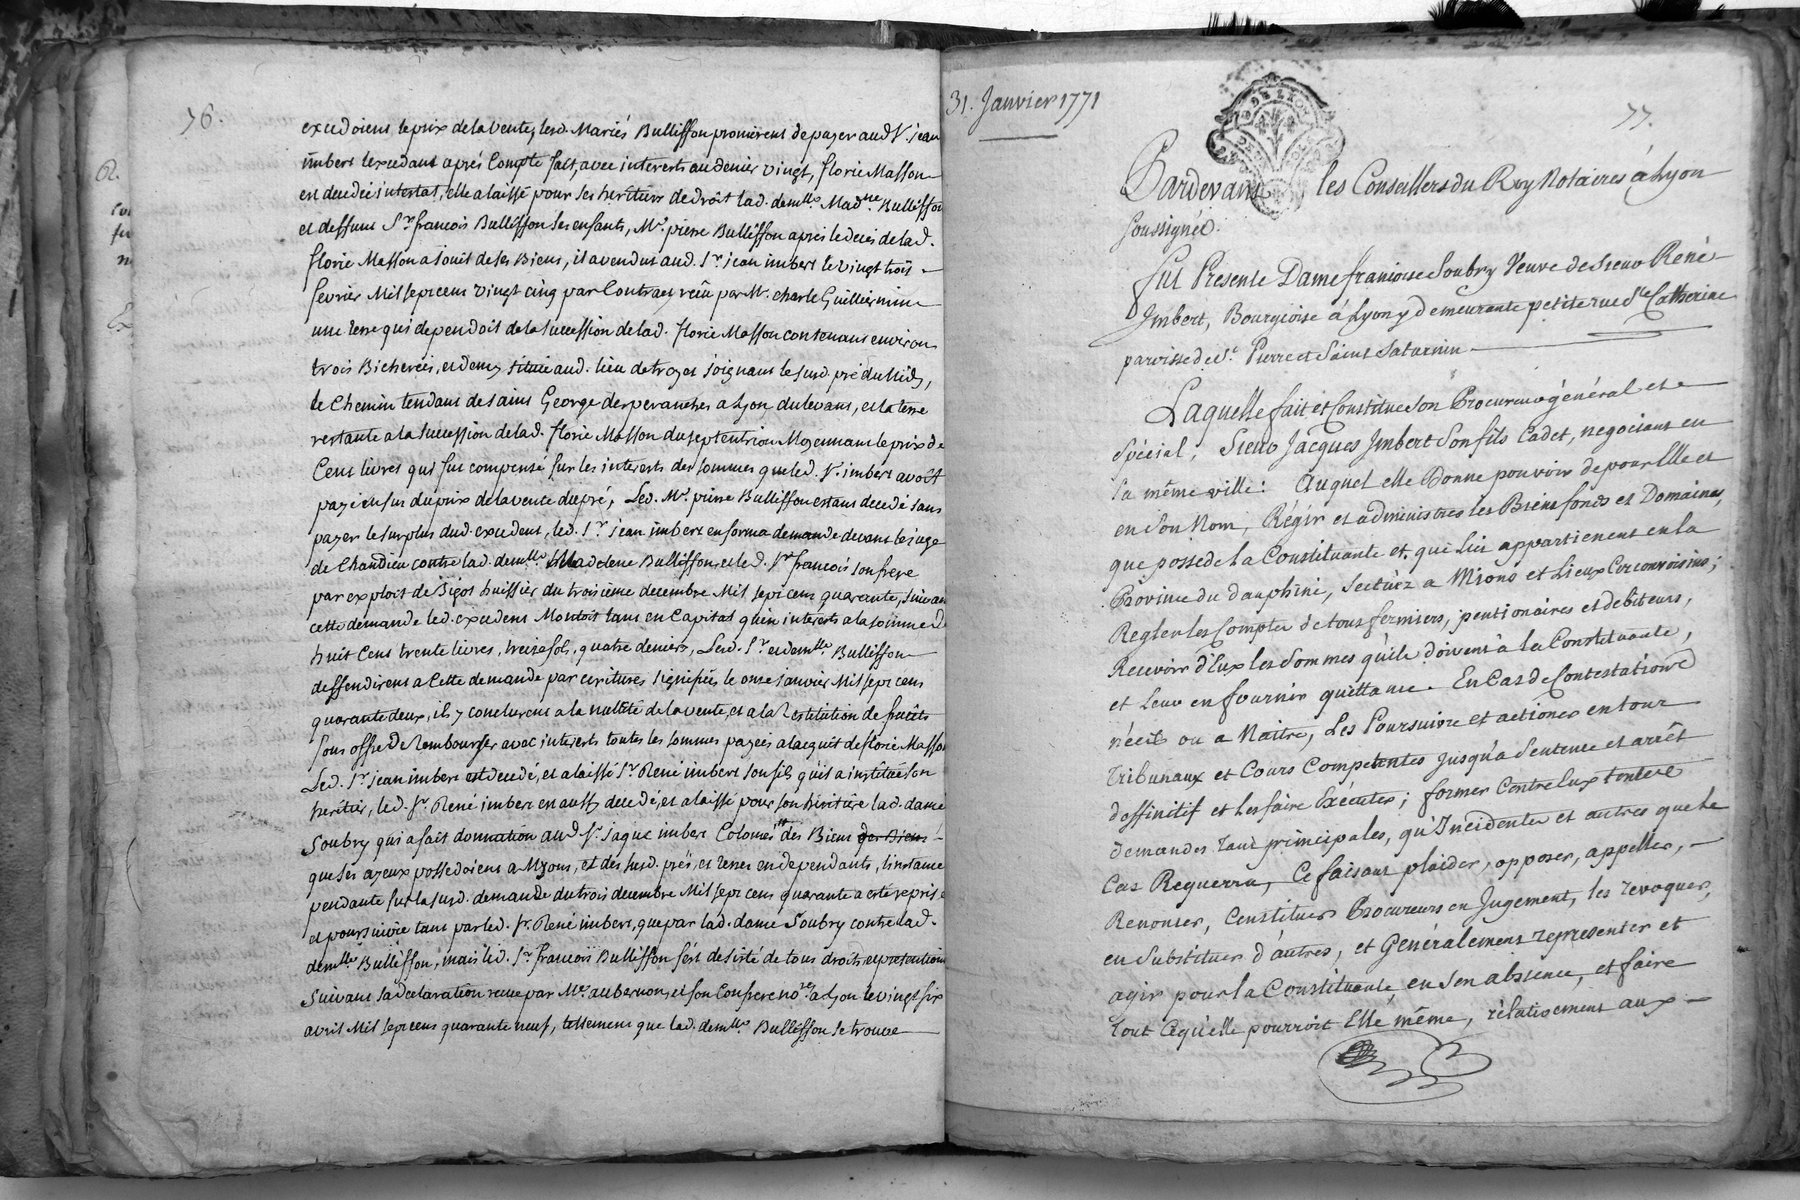 76.
excedoient le prix de la vente, lesd. Mariés Bulliffon promirent de payer aud. Sr. jean
imbert lexcedant aprés Compte fait, avec interests au denier vingt, florie Masson
est decedée intestat, elle a laissé pour ses heritiers de droit lad. demlle. Madne. Bulliffon
et deffunt Sr. francois Bulliffon ses enfants, Mr. pierre Bulliffon aprés le decés de lad.
florie Masson a jouit de ses Biens, il a vendu aud. Sr. jean imbert le vingt trois
fevrier Mil sept cent vingt cinq par Contract reçû par Me. charle Guillermin
une terre qui dependoit de la succession de lad. florie Masson contenant environ
trois Bicherées, et demy située aud. lieu de troyes joignant le susd. pré du Midy,
le Chemin tendant de saint George desperanches a Lyon du levant, et la terre
restante a la succession de lad. florie Masson du septentrion Moyennant le prix de
Cent livres qui fut compensé sur les interests des sommes que led. Sr. imbert avoit
payé en sus du prix de la vente du pré, Led. Mr. pierre Bulliffon estant decedé sans
payer le surplus dud. excedent, led. Sr. jean imbert en forma demande devant le juge
de Chandieu contre lad. demlle. Madelene Bulliffon, et led. Sr. francois son frere
par exploit de Bigot huissier du troisieme decembre Mil sept cent quarante, suivant
cette demande led. excedent Montoit tant en Capital qu'en interests a la somme de
huit Cent trente livres, treize sols, quatre deniers, Lesd. Sr. et demlle. Bulliffon
deffendirent a Cette demande par ecritures signifiées le onze janvier Mil sept cent
quarante deux, ils y conclurent a la nullité de la vente, et a la Restitution de fruits
sous offre de Rembourser avec interests toutes les sommes payées a lacquit de florie Masson
Led. Sr. jean imbert est decedé, et a laissé Sr. René imbert son fils qu'il a institué son
heritier, led. Sr. René imbert en aussy decedé, et a laissé pour son heritiere lad. dame
Soubry qui a fait donnation aud. Sr. jaque imbert Colomés des Biens des Biens
que ses ayeux possedoient a Myons, et des susd. prés, et terres en dependants, l'instance
pendante sur la susd. demande du trois decembre Mil sept cent quarante a esté reprise
et poursuivie tant par led. Sr. René imbert, que par lad. dame Soubry contre lad.
demlle. Bulliffon, mais led. Sr. francois Bulliffon s'est desisté de tous droits, et pretentions
suivant sa declaration recue par Me. aubernon, et son Confrere nores. a Lyon le vingt six
avril Mil sept cent quarante neuf, tellement que lad. demlle. Bulliffon se trouve
31. Janvier 1771
77.
Pardevant les Conseillers du Roy Notaires à Lyon
soussignés.
fut Présente Dame francoise Soubry Veuve de sieur René
Imbert, Bourgeoise à Lyon y demeurante petite rue Ste. Catherine
paroisse de St. Pierre et Saint Saturnin
Laquelle fait et Constitue son Procureur général et
spécial, Sieur Jacques Imbert son fils Cadet, negociant en
la même ville: Auquel elle Donne pouvoir de pour Elle et
en son Nom, Régir et administrer les Biens fonds et Domaines,
que possede la Constituante et qui lui appartienent en la
Province du dauphiné, scituéz a Mions et Lieux Circonvoisins;
Regler les Comptes de tous fermiers, pentionaires et debiteurs,
Recevoir d'Eux les sommes qu'ils doivent à la Constituante,
et leur en fournir quittance. En Cas de Contestations
nées ou a Naitre, Les Poursuivre et actioner en tour
Tribunaux et Cours Competentes jusqu'a Sentence et arrêt
deffinitif et les faire Exécuter; former Contre Eux toutes
demandes tant principales, qu'Incidentes et autres que le
Cas Requerra, Ce faisant plaider, opposer, appeller,
Renoncer, Constituer Procureurs en Jugement, les revoquer,
en substituer d'autres, et Genéralement representer et
agir pour la Constituante en son absence, et faire
tout ce qu'elle pourroit Elle même, rélativement aux